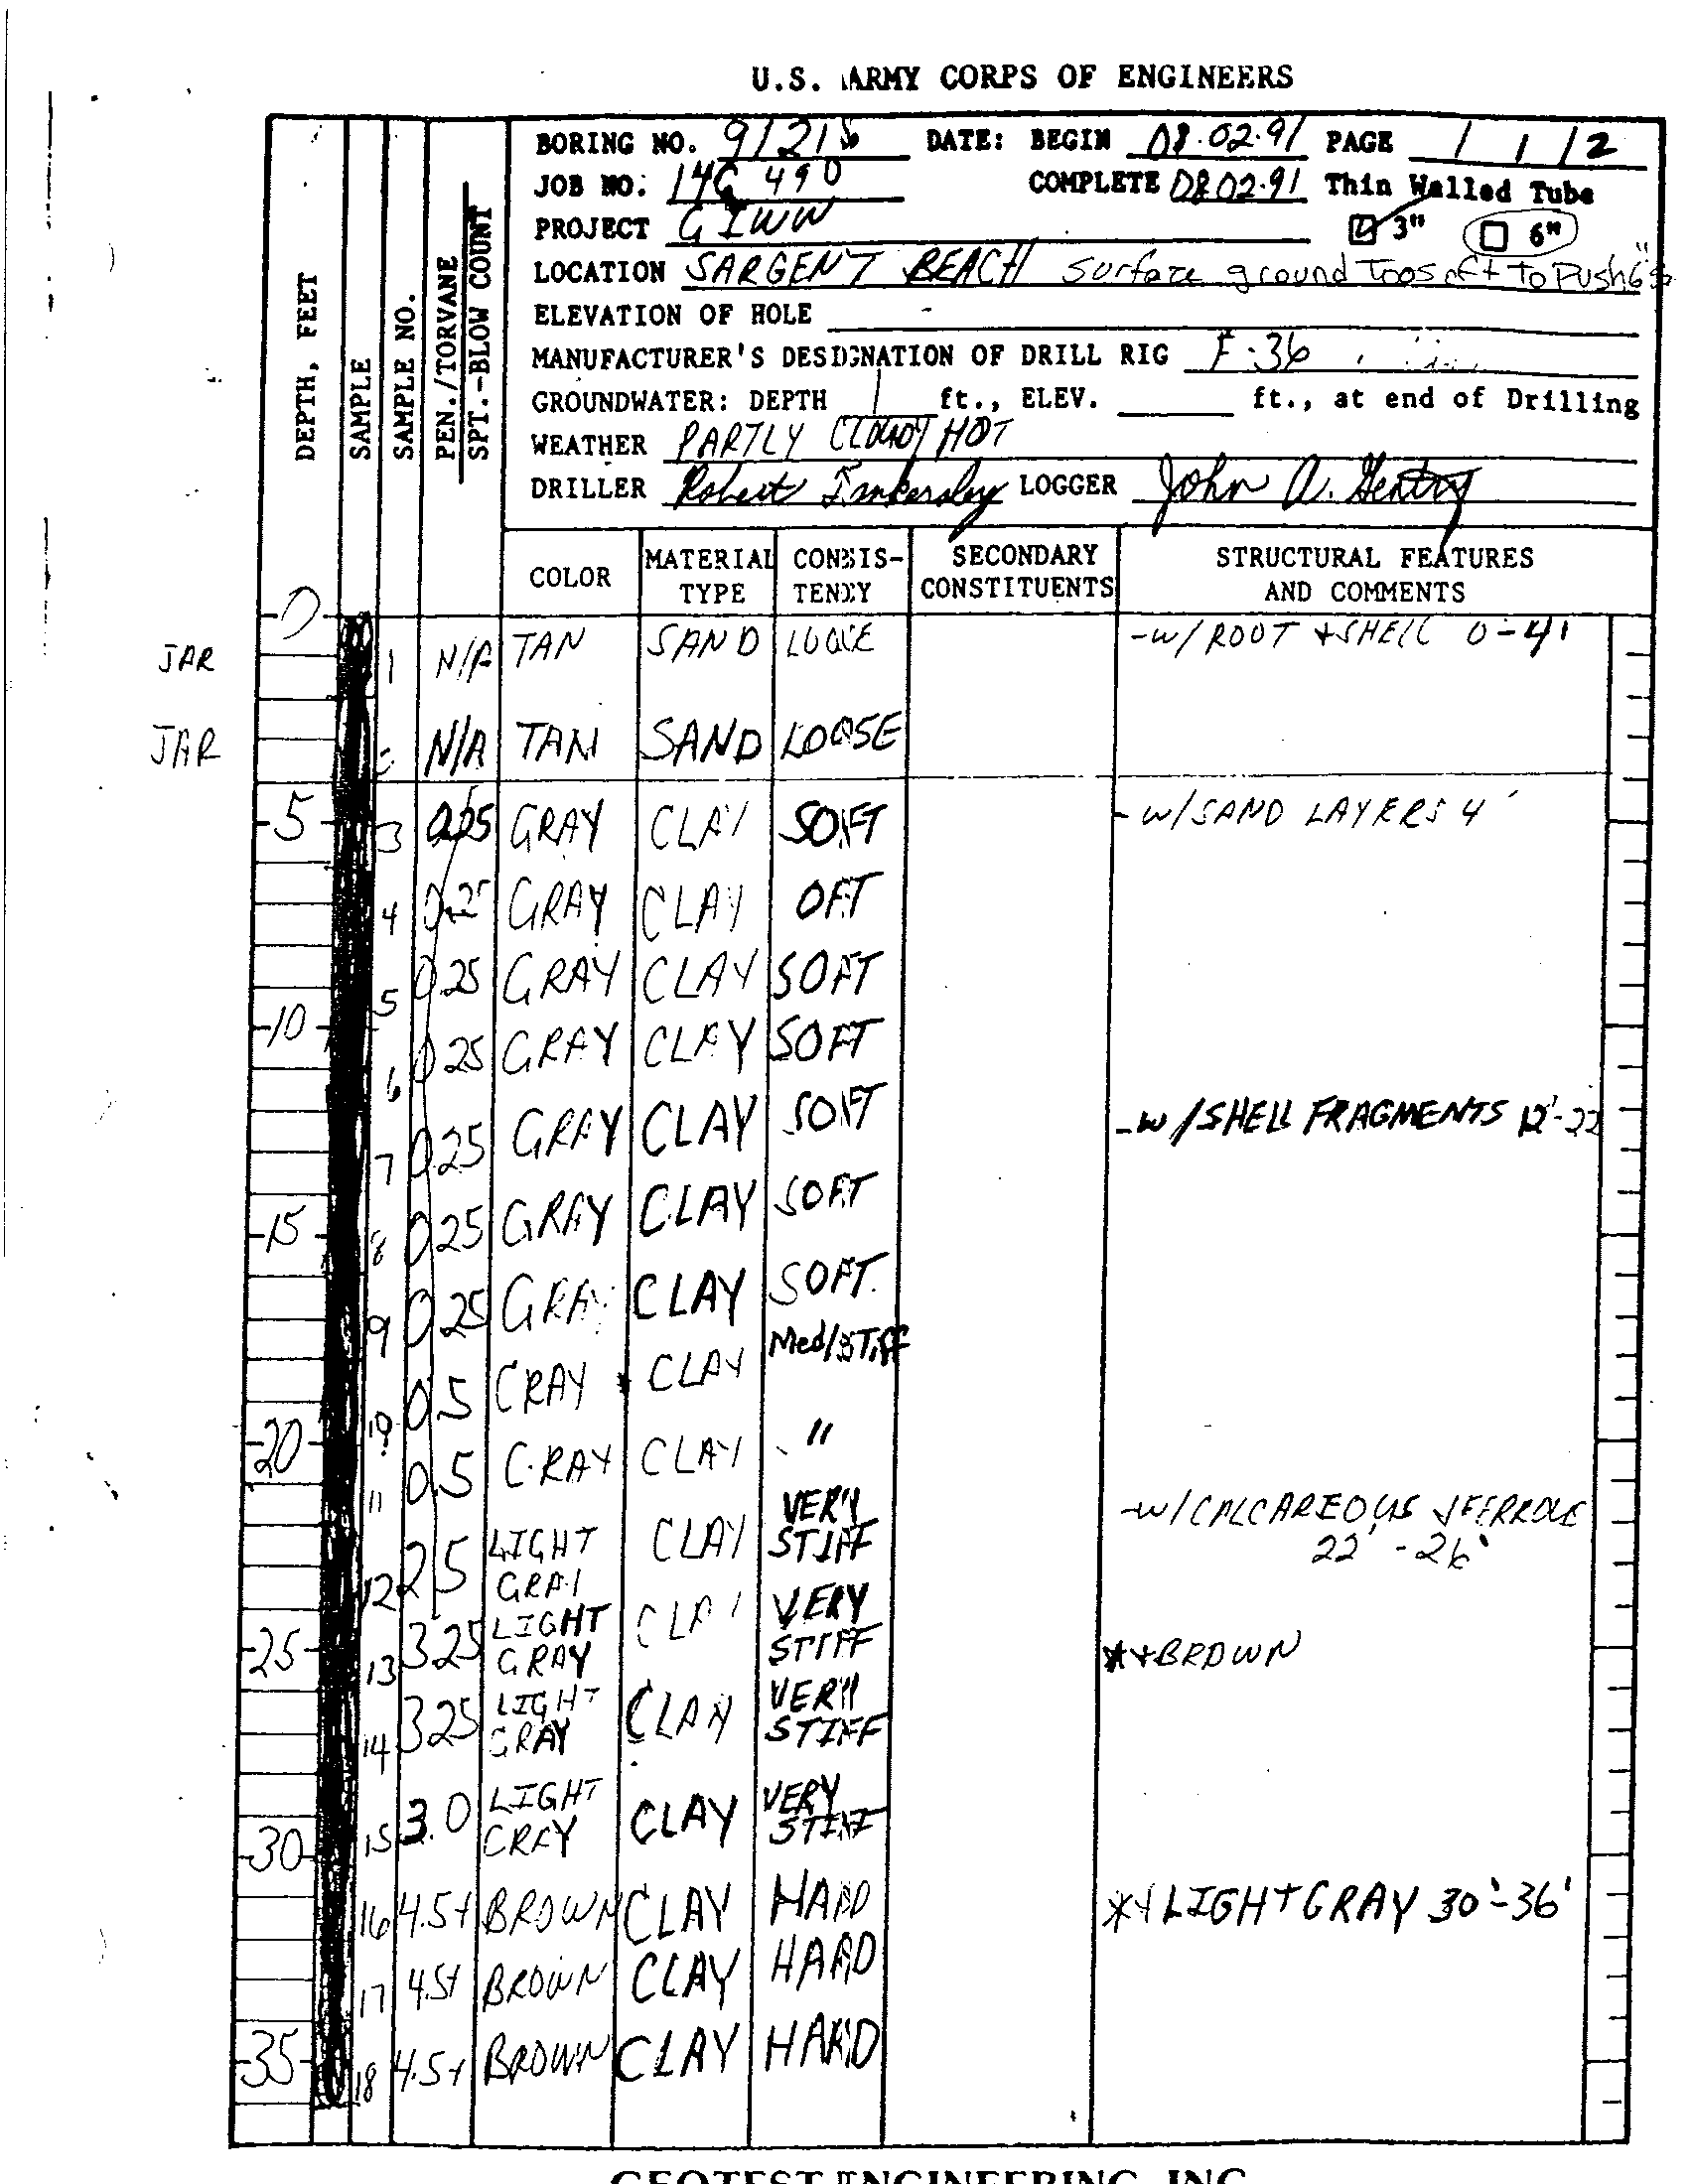 U.S. ARMY CORPS OF ENGINEERS
DEPTH, FEET
SAMPLE
SAMPLE NO.
PEN./TORVANE
SPT.-BLOW COUNT
BORING NO. DATE: BEGIN 08.02.91 PAGE 1 / 2
JOB NO: 14G 490 COMPLETE 08.02.91 Thin Walled Tube
PROJECT GIWW 3" 6"
LOCATION SARGENT BEACH Surface ground Too soft To Push 6"s
ELEVATION OF HOLE
MANUFACTURER'S DESIGNATION OF DRILL RIG F-36
GROUNDWATER: DEPTH ft., ELEV. ft., at end of Drilling
WEATHER PARTLY CLOUDY HOT
DRILLER Robert LOGGER John A. Gentry
COLOR MATERIAL TYPE CONSIS-TENCY SECONDARY CONSTITUENTS STRUCTURAL FEATURES AND COMMENTS
0
JAR 1 N/A TAN SAND LOOSE -W/ ROOT + SHELL 0-4'
JAR 2 N/A TAN SAND LOOSE
5 3 0.25 GRAY CLAY SOFT - W/SAND LAYERS 4'
4 0.25 GRAY CLAY OFT
5 0.25 GRAY CLAY SOFT
10
6 0.25 GRAY CLAY SOFT
7 0.25 GRAY CLAY SOFT -W/SHELL FRAGMENTS 12'-22
15 8 0.25 GRAY CLAY SOFT
9 0.25 GRAY CLAY SOFT
10 0.5 GRAY CLAY Med/STiff
20
11 0.5 GRAY CLAY "
12 2.5 LIGHT GRAY CLAY VERY STIFF -W/CALCAREOUS + FERROUS 22' - 26'
25 13 3.25 LIGHT GRAY CLAY VERY STIFF *+BROWN
14 3.25 LIGHT GRAY CLAY VERY STIFF
30 15 3.0 LIGHT GRAY CLAY VERY STIFF
16 4.5+ BROWN CLAY HARD *+ LIGHT GRAY 30'-36'
17 4.5+ BROWN CLAY HARD
35 18 4.5+ BROWN CLAY HARD
GEOTEST ENGINEERING, INC.